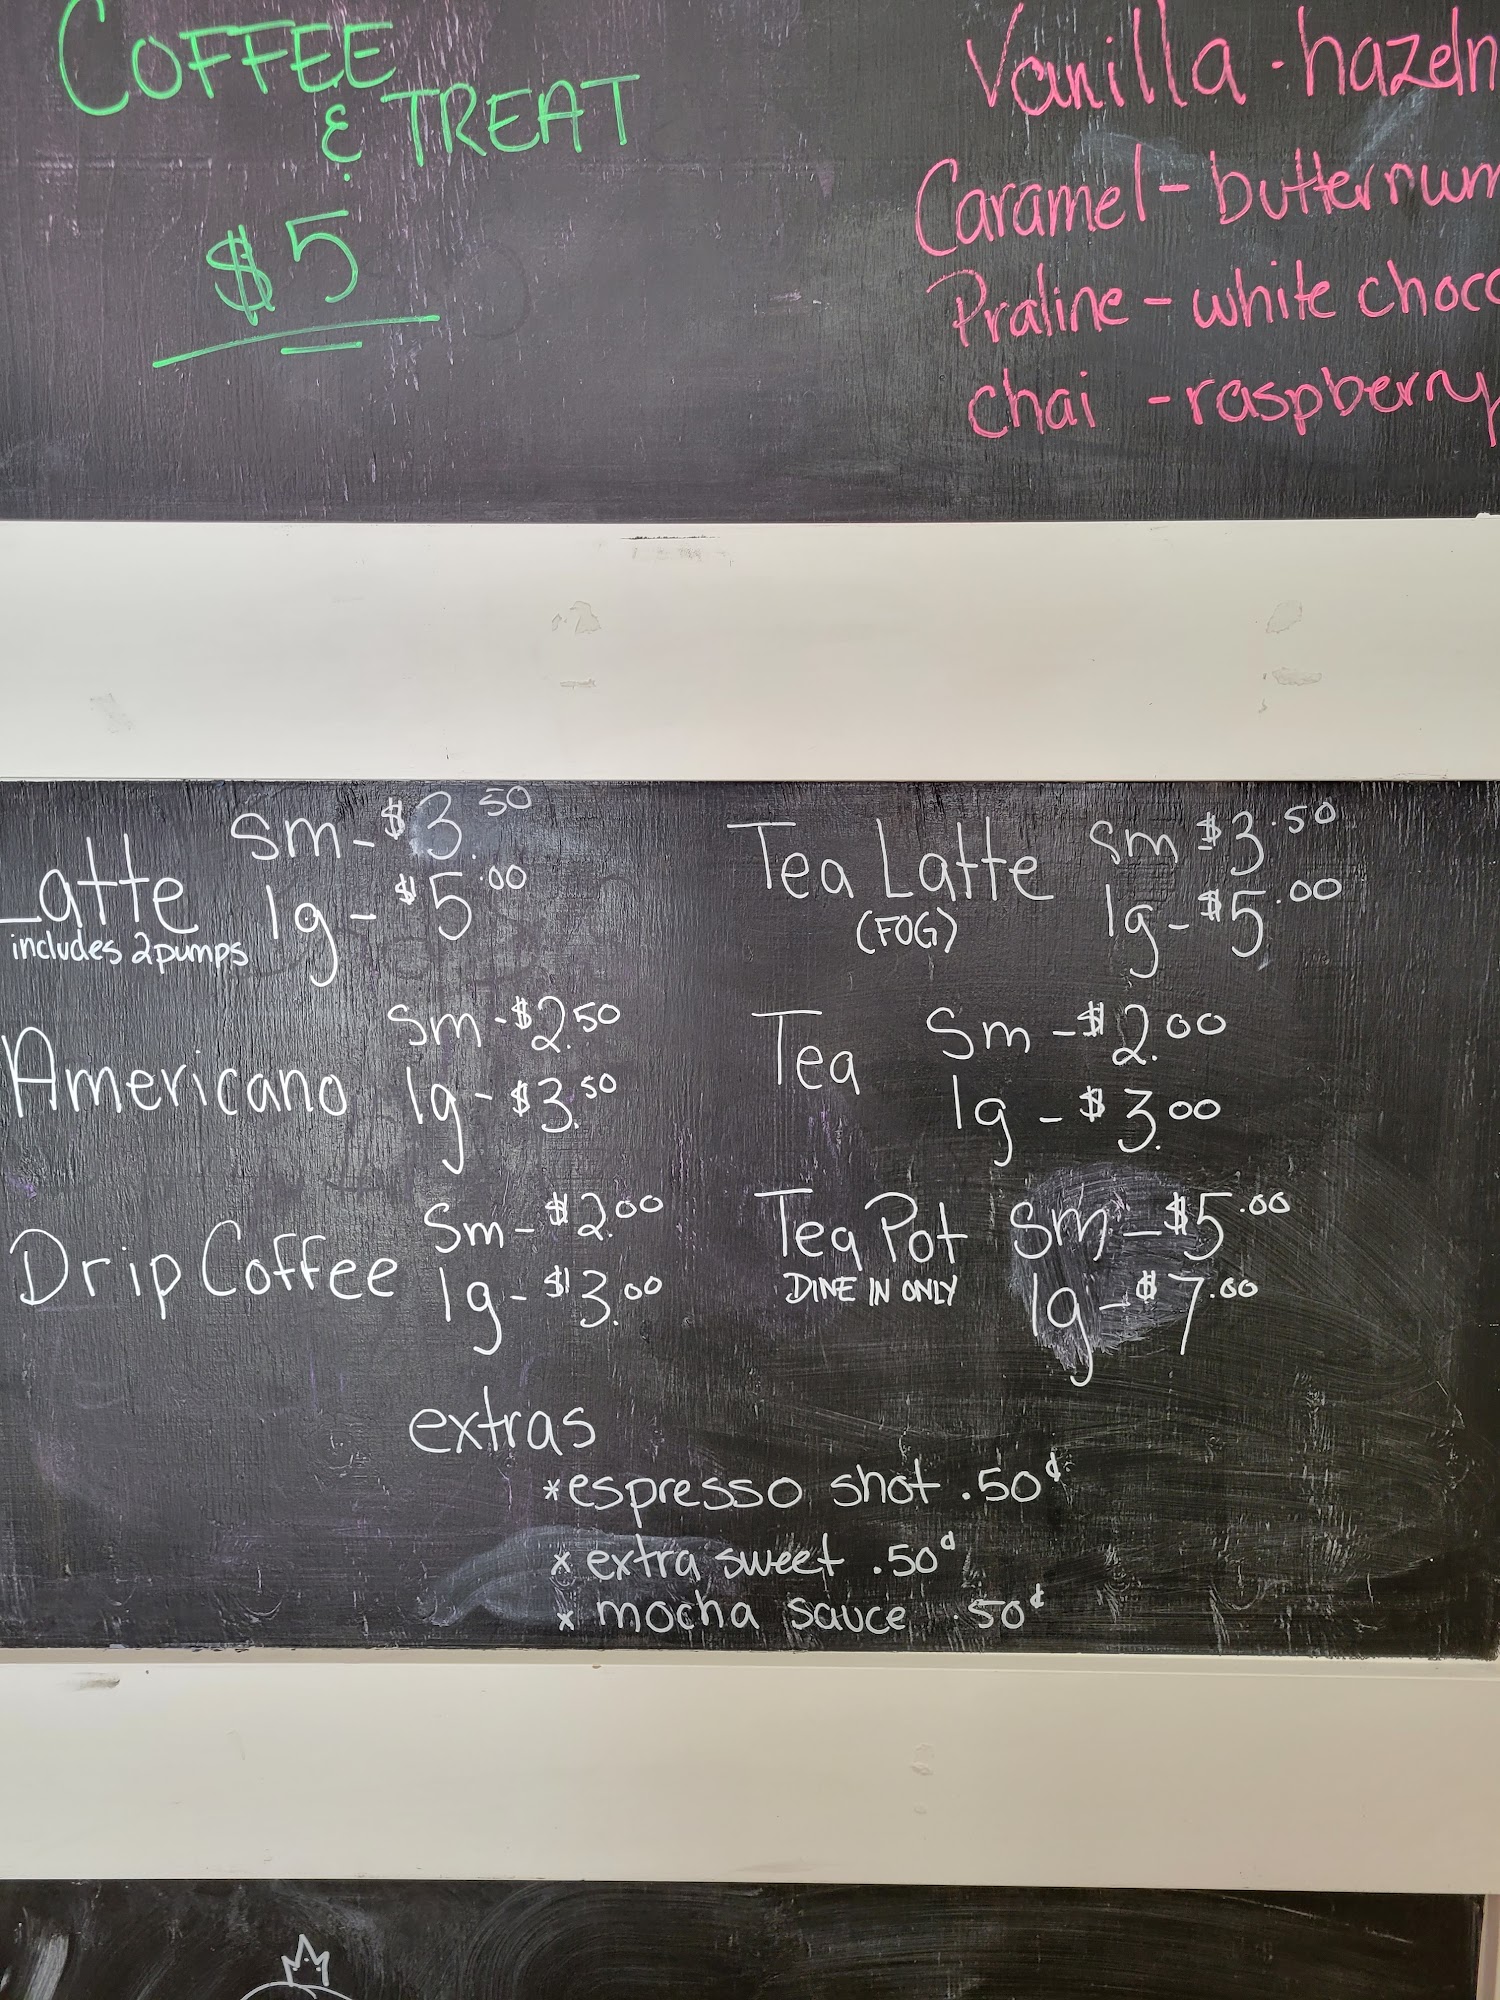 COFFEE
& TREAT
$5
Vanilla - hazeln
Caramel - butternum
Praline - white choco
chai - raspberry
Latte sm - $3.50
includes 2 pumps lg - $5.00
Americano sm - $2.50
lg - $3.50
Drip Coffee sm - $2.00
lg - $3.00
Tea Latte sm $3.50
(FOG) lg - $5.00
Tea sm - $2.00
lg - $3.00
Tea Pot sm - $5.00
DINE IN ONLY lg - $7.00
extras
*espresso shot .50¢
* extra sweet .50¢
* mocha sauce .50¢